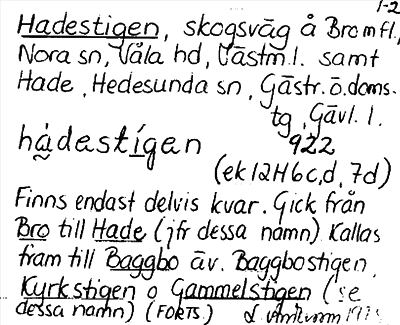 1-2
Hadestigen, skogsväg å Bromfl.,
Nora sn, Våla hd, Västm.l. samt
Hade, Hedesunda sn, Gästr.ö.doms.
tg, Gävl. l.
hàdestígen 922
(ek 12H6c,d, 7d)
Finns endast delvis kvar. Gick från
Bro till Hade (jfr dessa namn) Kallas
fram till Baggbo äv. Baggbostigen,
Kyrkstigen o Gammelstigen (se
dessa namn) (FORTS.)